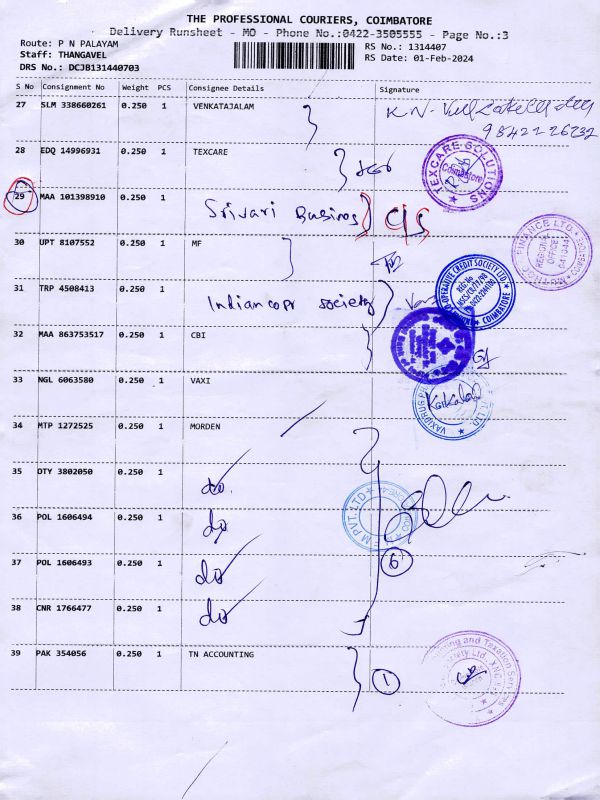 THE PROFESSIONAL COURIERS, COIMBATORE
Delivery Runsheet - MO - Phone No.:0422-3505555 - Page No.:3
Route: P N PALAYAM
Staff: THANGAVEL
DRS No.: DCJB131440703
RS No.: 1314407
RS Date: 01-Feb-2024
S No Consignment No Weight PCS Consignee Details Signature
27 SLM 338660261 0.250 1 VENKATAJALAM
K.N.
28 EDQ 14996931 0.250 1 TEXCARE
TEXCARE SOLUTIONS Coimbatore
29 MAA 101398910 0.250 1 Srivari Busines C/S
30 UPT 8107552 0.250 1 MF
FINANCE LTD. REGIONAL OFFICE
31 TRP 4508413 0.250 1 Indian copr society
OPERATIVE CREDIT SOCIETY LTD COIMBATORE
32 MAA 863753517 0.250 1 CBI
33 NGL 6063580 0.250 1 VAXI
34 MTP 1272525 1 0.250 MORDEN
35 DTY 3802050 0.250 1 do
36 POL 1606494 0.250 1 do
M PVT. LTD
37 POL 1606493 0.250 1 do 6
38 CNR 1766477 0.250 1 do
39 PAK 354056 0.250 1 TN ACCOUNTING 1
and Taxation Services